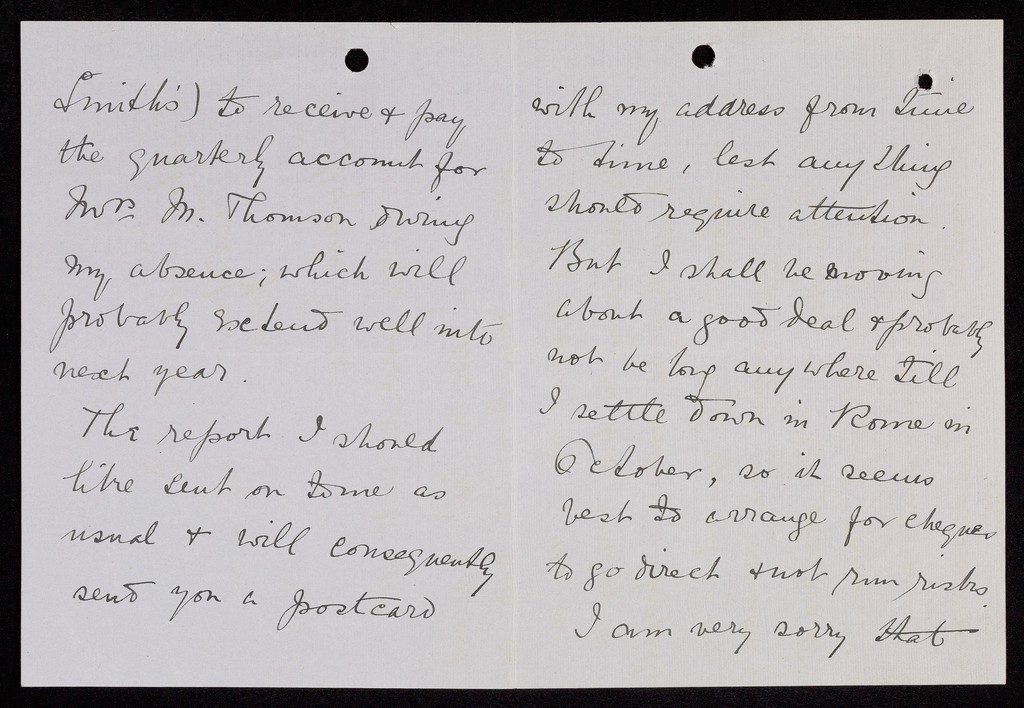 Smith's) to receive & pay
the quarterly account for
Mrs. M. Thomson during
my absence; which will
probably extend well into
next year.
The report I should
like sent on to me as
usual & will consequently
send you a postcard
with my address from time
to time, lest anything
should require attention.
But I shall be moving
about a good deal & probably
not be long anywhere till
I settle down in Rome in
October, so it seems
best to arrange for cheques
to go direct & not run risks.
I am very sorry that